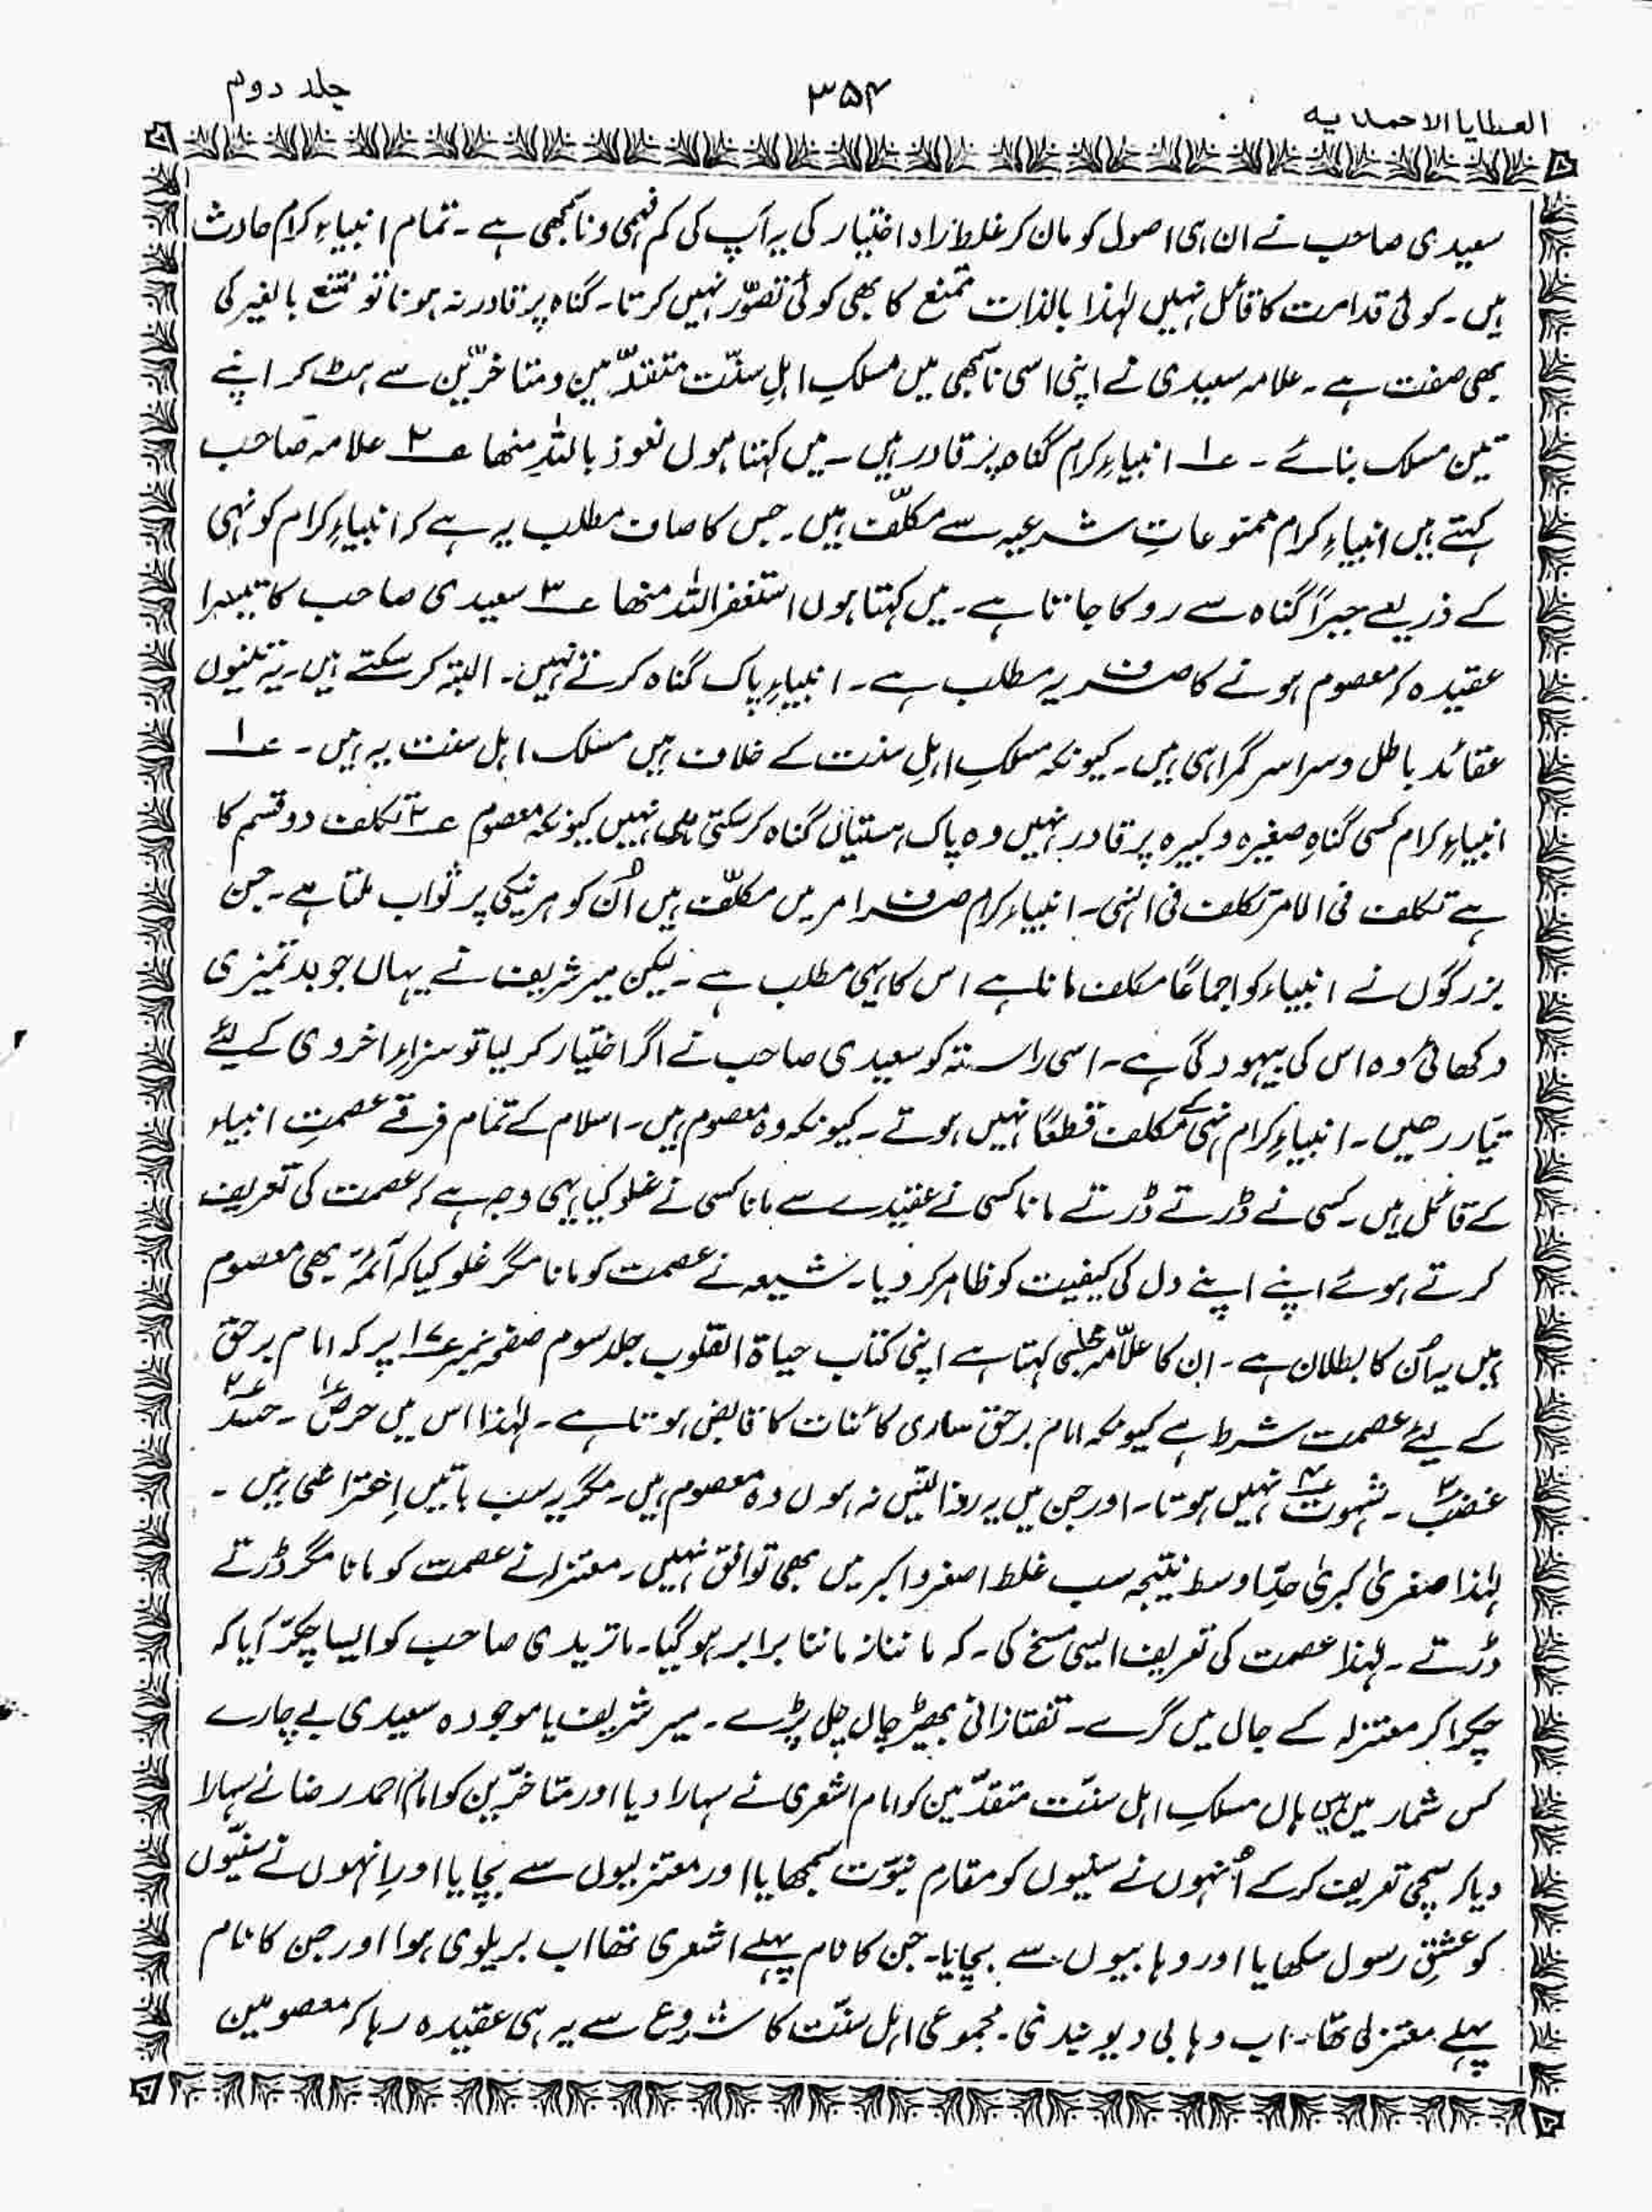 العطایا الاحمدیہ ۳۵۴ جلد دوم
سعیدی صاحب نے ان ہی اصول کو مان کر غلط راہ اختیار کی یہ آپ کی کم فہمی و ناسمجھی ہے ۔ تمام انبیاءِ کرام حادث
ہیں ۔ کوئی قدامت کا قائل نہیں لہٰذا بالذات ممتنع کا بھی کوئی تصوّر نہیں کرتا ۔ گناہ پر قادر نہ ہونا تو ممتنع بالغیر کی
بھی صفت ہے ۔ علامہ سعیدی نے اپنی اسی ناسمجھی میں مسلکِ اہلِ سنّت متقدّمین و متاخرّین سے ہٹ کر اپنے
تین مسلک بنائے ۔ ۱؎ انبیاءِ کرام گناہ پر قادر ہیں ۔ میں کہتا ہوں نعوذ باللہِ منھا ۲؎ علامہ صاحب
کہتے ہیں انبیاءِ کرام ممنوعاتِ شرعیہ سے مکلّف ہیں ۔ جس کا صاف مطلب یہ ہے کہ انبیاءِ کرام کو نہی
کے ذریعے جبراً گناہ سے روکا جاتا ہے ۔ میں کہتا ہوں استغفر اللہ منھا ۳؎ سعیدی صاحب کا تیسرا
عقیدہ کہ معصوم ہونے کا صرف یہ مطلب ہے ۔ انبیاءِ پاک گناہ کرتے نہیں ۔ البتہ کر سکتے ہیں ۔ یہ تینوں
عقائد باطل و سراسر گمراہی ہیں ۔ کیونکہ مسلکِ اہلِ سنت کے خلاف ہیں مسلک اہل سنت یہ ہیں ۔ ۱؎
انبیاءِ کرام کسی گناہِ صغیرہ و کبیرہ پر قادر نہیں وہ پاک ہستیاں گناہ کر سکتی ہی نہیں کیونکہ معصوم ۲؎ تکلف دو قسم کا
ہے تکلف فی الامر تکلف فی النہی ۔ انبیاءِ کرام صرف امر میں مکلّف ہیں اُن کو ہر نیکی پر ثواب ملتا ہے ۔ جن
بزرگوں نے انبیاء کو اجماعًا مکلف مانا ہے اس کا یہی مطلب ہے ۔ لیکن میر شریف نے یہاں جو بدتمیزی
دکھائی وہ اس کی بیہودگی ہے ۔ اسی راستہ کو سعیدی صاحب نے اگر اختیار کر لیا تو سزاءِ اخروی کے لیئے
تیّار رھیں ۔ انبیاءِ کرام نہی کے مکلف قطعًا نہیں ہوتے ۔ کیونکہ وہ معصوم ہیں ۔ اسلام کے تمام فرقے عصمتِ انبیاء
کے قائل ہیں ۔ کسی نے ڈرتے ڈرتے مانا کسی نے عقیدے سے مانا کسی نے غلو کیا یہی وجہ ہے کہ عصمت کی تعریف
کرتے ہوئے اپنے اپنے دل کی کیفیت کو ظاہر کر دیا ۔ شیعہ نے عصمت کو مانا مگر غلو کیا کہ آئمہ بھی معصوم
ہیں یہ اُن کا بطلان ہے ۔ ان کا علاّمہ مجلسی کہتا ہے اپنی کتاب حیاۃ القلوب جلد سوم صفحہ نمبر ۱۷ پر کہ امام برحق
کے لیئے عصمت شرط ہے کیونکہ امام برحق ساری کائنات کا قابض ہوتا ہے ۔ لہٰذا اس میں حرص۱؎ ۔ حسد۲؎
غضب۳؎ ۔ شہوت۴؎ نہیں ہوتا ۔ اور جن میں یہ رذالتیں نہ ہوں وہ معصوم ہیں ۔ مگر یہ سب باتیں اِختراعی ہیں ۔
لہٰذا صغریٰ کبریٰ حدِّ اوسط نتیجہ سب غلط اصغر و اکبر میں بھی توافق نہیں ۔ معتزلہ نے عصمت کو مانا مگر ڈرتے
ڈرتے ۔ لہٰذا عصمت کی تعریف ایسی مسخ کی ۔ کہ ماننا نہ ماننا برابر ہو گیا ۔ ماتریدی صاحب کو ایسا چکّر آیا کہ
چکرا کر معتزلہ کے جال میں گرے ۔ تفتازانی بھیڑ چال چل پڑے ۔ میر شریف یا موجودہ سعیدی بے چارے
کس شمار میں ہیں ہاں مسلکِ اہل سنّت متقدّمین کو امام اشعری نے سہارا دیا اور متاخرّین کو امام احمد رضا نے سہارا
دیا کہ سچی تعریف کر کے اُنہوں نے سنیوں کو مقامِ نبوّت سمجھایا اور معتزلیوں سے بچایا اور اِنہوں نے سنیّوں
کو عشقِ رسول سکھایا اور وہابیوں سے بچایا ۔ جن کا نام پہلے اشعری تھا اب بریلوی ہوا اور جن کا نام
پہلے معتزلی تھا ۔ اب وہابی دیوبندی ۔ مجموعی اہل سنّت کا شروع سے یہ ہی عقیدہ رہا کہ معصومین